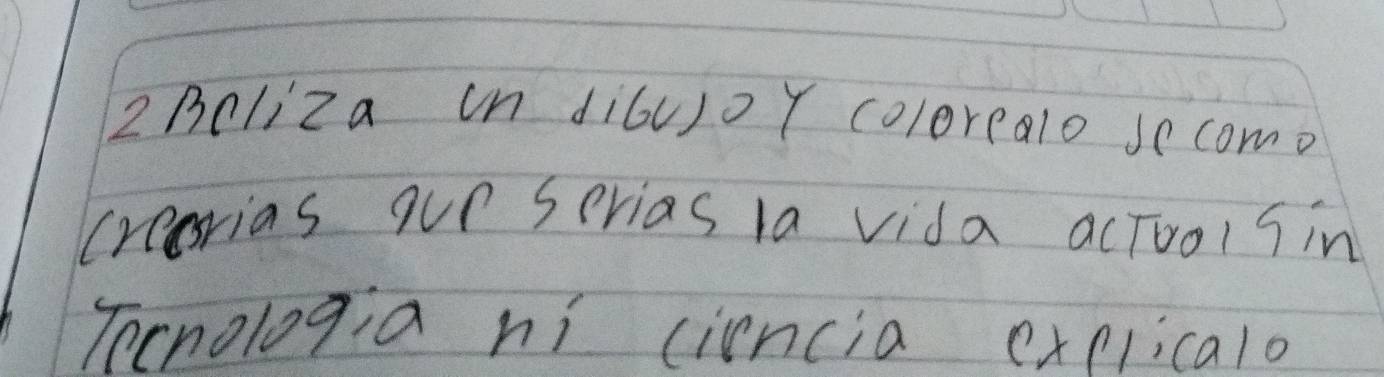 2 Reliza un dibujo Y colorealo de como
creerias que serias la vida actual sin
Tecnologia ni ciencia explicalo